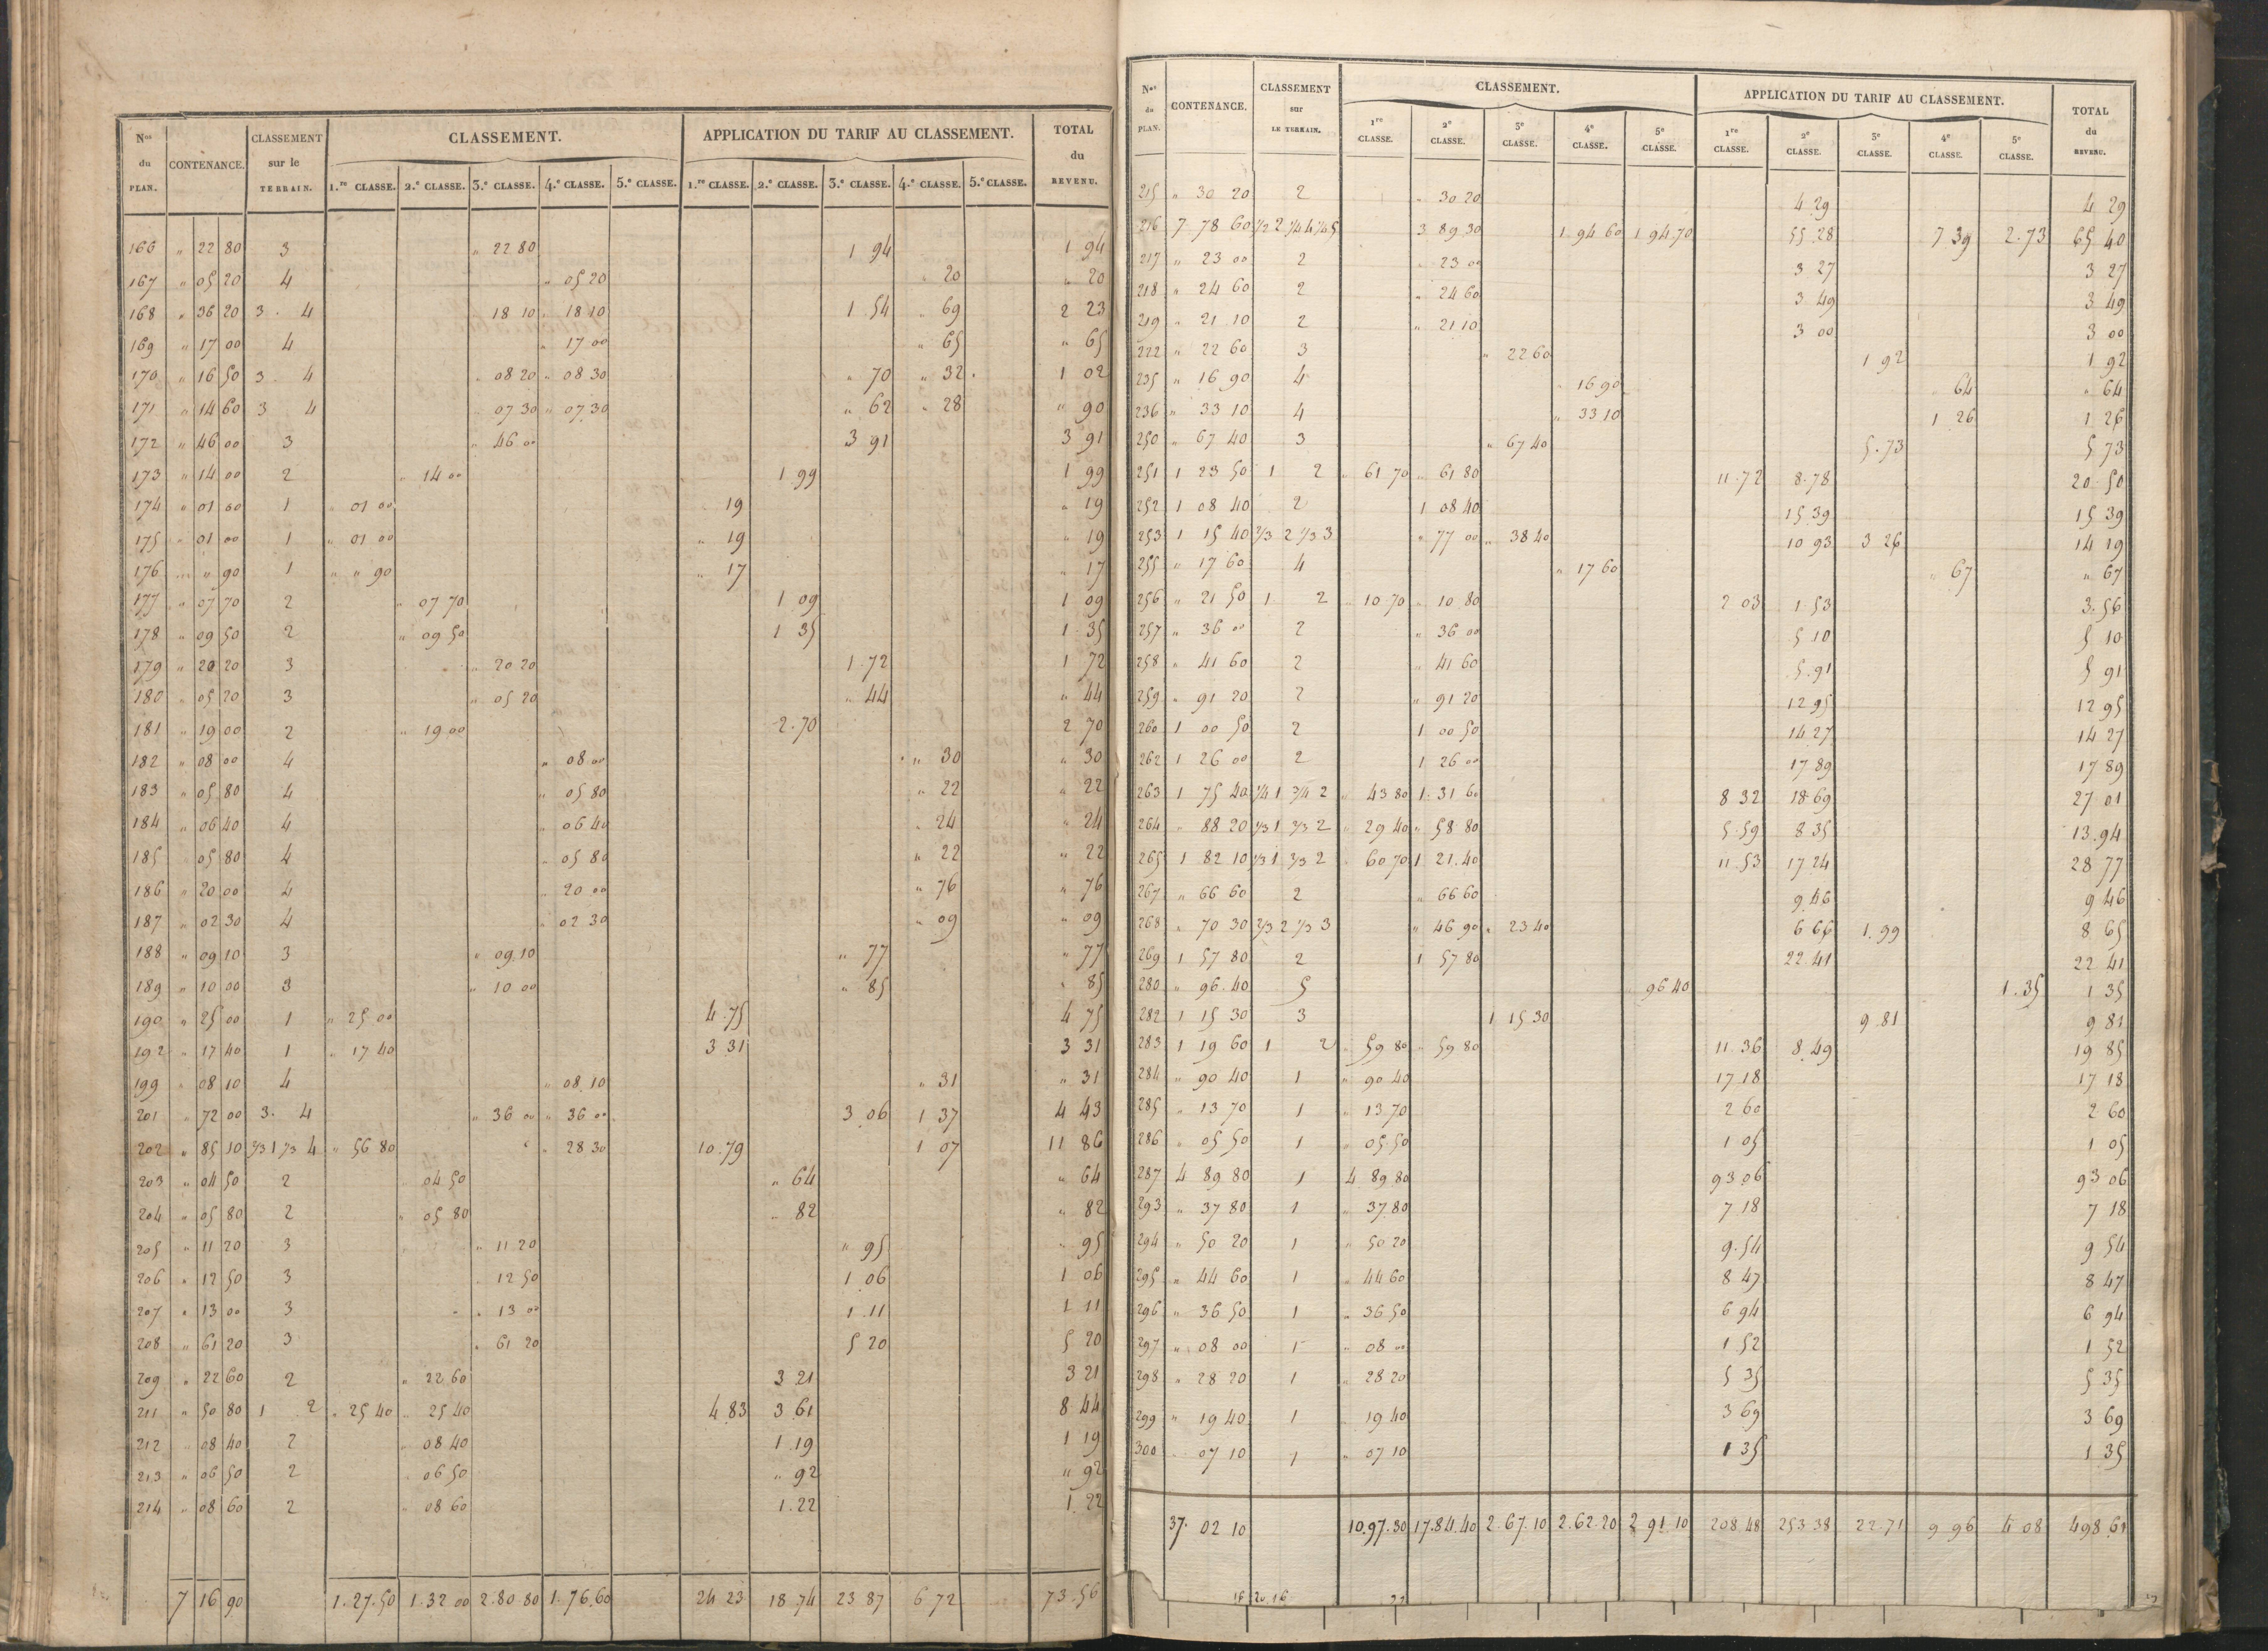 Nos du PLAN. CONTENANCE. CLASSEMENT sur le TERRAIN. CLASSEMENT. APPLICATION DU TARIF AU CLASSEMENT. TOTAL du REVENU.
1.re CLASSE. 2.e CLASSE. 3.e CLASSE. 4.e CLASSE. 5.e CLASSE. 1.re CLASSE. 2.e CLASSE. 3.e CLASSE. 4.e CLASSE. 5.e CLASSE.
166 " 22 80 3 " 22 80 1 94 1 94
167 " 05 20 4 " 05 20 " 20 " 20
168 " 36 20 3. 4 18 10 " 18 10 1 54 " 69 2 23
169 " 17 00 4 " 17 00 " 65 " 65
170 " 16 50 3. 4 " 08 20 " 08 30 " 70 " 32 1 02
171 " 14 60 3 4 " 07 30 " 07 30 " 62 " 28 " 90
172 " 46 00 3 " 46 00 3 91 3 91
173 " 14 00 2 " 14 00 1.99 1 99
174 " 01 00 1 " 01 00 " 19 " 19
175 " 01 00 1 " 01 00 " 19 " 19
176 " " 90 1 " " 90 " 17 " 17
177 " 07 70 2 " 07 70 1 09 1 09
178 " 09 50 2 " 09 50 1 35 1 35
179 " 20 20 3 " 20 20 1.72 1 72
180 " 05 20 3 " 05 20 " 44 " 44
181 " 19 00 2 " 19 00 2.70 2 70
182 " 08 00 4 " 08 00 " 30 " 30
183 " 05 80 4 " 05 80 " 22 " 22
184 " 06 40 4 " 06 40 " 24 " 24
185 " 05 80 4 " 05 80 " 22 " 22
186 " 20 00 4 " 20 00 " 76 " 76
187 " 02 30 4 " 02 30 " 09 " 09
188 " 09 10 3 " 09 10 " 77 " 77
189 " 10 00 3 " 10 00 " 85 " 85
190 " 25 00 1 " 25 00 4.75 4 75
192 " 17 40 1 " 17 40 3 31 3 31
199 " 08 10 4 " 08 10 " 31 " 31
201 " 72 00 3. 4 " 36 00 " 36 00 3 06 1 37 4 43
202 " 85 10 2/3 1 1/3 4 " 56 80 " 28 30 10.79 1 07 11 86
203 " 04 50 2 " 04 50 " 64 " 64
204 " 05 80 2 " 05 80 " 82 " 82
205 " 11 20 3 " 11 20 " 95 " 95
206 " 12 50 3 " 12 50 1 06 1 06
207 " 13 00 3 " 13 00 1.11 1 11
208 " 61 20 3 " 61 20 5 20 5 20
209 " 22 60 2 " 22 60 3 21 3 21
211 " 50 80 1 2 " 25 40 " 25 40 4 83 3 61 8 44
212 " 08 40 2 " 08 40 1 19 1 19
213 " 06 50 2 " 06 50 " 92 " 92
214 " 08 60 2 " 08 60 1.22 1.22
7 16 90 1.27.50 1.32 00 2.80 80 1.76.60 24 23 18 74 23 87 6 72 73.56
Nos du PLAN. CONTENANCE. CLASSEMENT sur LE TERRAIN. CLASSEMENT. APPLICATION DU TARIF AU CLASSEMENT. TOTAL du REVENU.
1re CLASSE. 2e CLASSE. 3e CLASSE. 4e CLASSE. 5e CLASSE. 1re CLASSE. 2e CLASSE. 3e CLASSE. 4e CLASSE. 5e CLASSE.
215 " 30 20 2 " 30 20 4 29 4 29
216 7 78 60 1/2 2 1/4 4 1/4 5 3 89 30 1 94 60 1 94 70 55 28 7 39 2.73 65 40
217 " 23 00 2 " 23 00 3 27 3 27
218 " 24 60 2 " 24 60 3 49 3 49
219 " 21 10 2 " 21 10 3 00 3 00
222 " 22 60 3 " 22 60 1 92 1 92
235 " 16 90 4 " 16 90 " 64 " 64
236 " 33 10 4 " 33 10 1 26 1 26
250 " 67 40 3 " 67 40 5.73 5 73
251 1 23 50 1 2 " 61 70 " 61 80 11.72 8.78 20 50
252 1 08 40 2 1 08 40 15 39 15 39
253 1 15 40 2/3 2 1/3 3 " 77 00 " 38 40 10 93 3 26 14 19
255 " 17 60 4 " 17 60 " 67 " 67
256 " 21 50 1 2 " 10 70 " 10 80 2 03 1.53 3.56
257 " 36 00 2 " 36 00 5 10 5 10
258 " 41 60 2 " 41 60 5.91 5 91
259 " 91 20 2 " 91 20 12 95 12 95
260 1 00 50 2 1 00 50 14 27 14 27
262 1 26 00 2 1 26 00 17 89 17 89
263 1 75 40 1/4 1 3/4 2 " 43 80 1.31 60 8 32 18.69 27 01
264 " 88 20 1/3 1 2/3 2 " 29 40 " 58 80 5.59 8 35 13.94
265 1 82 10 1/3 1 2/3 2 " 60 70 1 21.40 11.53 17 24 28 77
267 " 66 60 2 " 66 60 9.46 9 46
268 " 70 30 2/3 2 1/3 3 " 46 90 " 23 40 6 66 1.99 8 65
269 1 57 80 2 1 57 80 22 41 22 41
280 " 96.40 5 96 40 1.35 1 35
282 1 15 30 3 1 15 30 9.81 9 81
283 1 19 60 1 2 " 59 80 " 59 80 11.36 8.49 19 85
284 " 90 40 1 " 90 40 17 18 17 18
285 " 13 70 1 " 13 70 2 60 2 60
286 " 05 50 1 " 05 50 1 05 1 05
287 4 89 80 1 4 89 80 93 06 93 06
293 " 37 80 1 " 37 80 7 18 7 18
294 " 50 20 1 " 50 20 9.54 9 54
295 " 44 60 1 " 44 60 8 47 8 47
296 " 36 50 1 " 36 50 6 94 6 94
297 " 08 00 1 " 08 00 1 52 1 52
298 " 28 20 1 " 28 20 5 35 5 35
299 " 19 40 1 " 19 40 3 69 3 69
300 " 07 10 1 " 07 10 1 35 1 35
37. 02 10 10.97.30 17.84.40 2.67.10 2.62.20 2 91 10 208 48 253 38 22.71 9 96 4 08 498 61